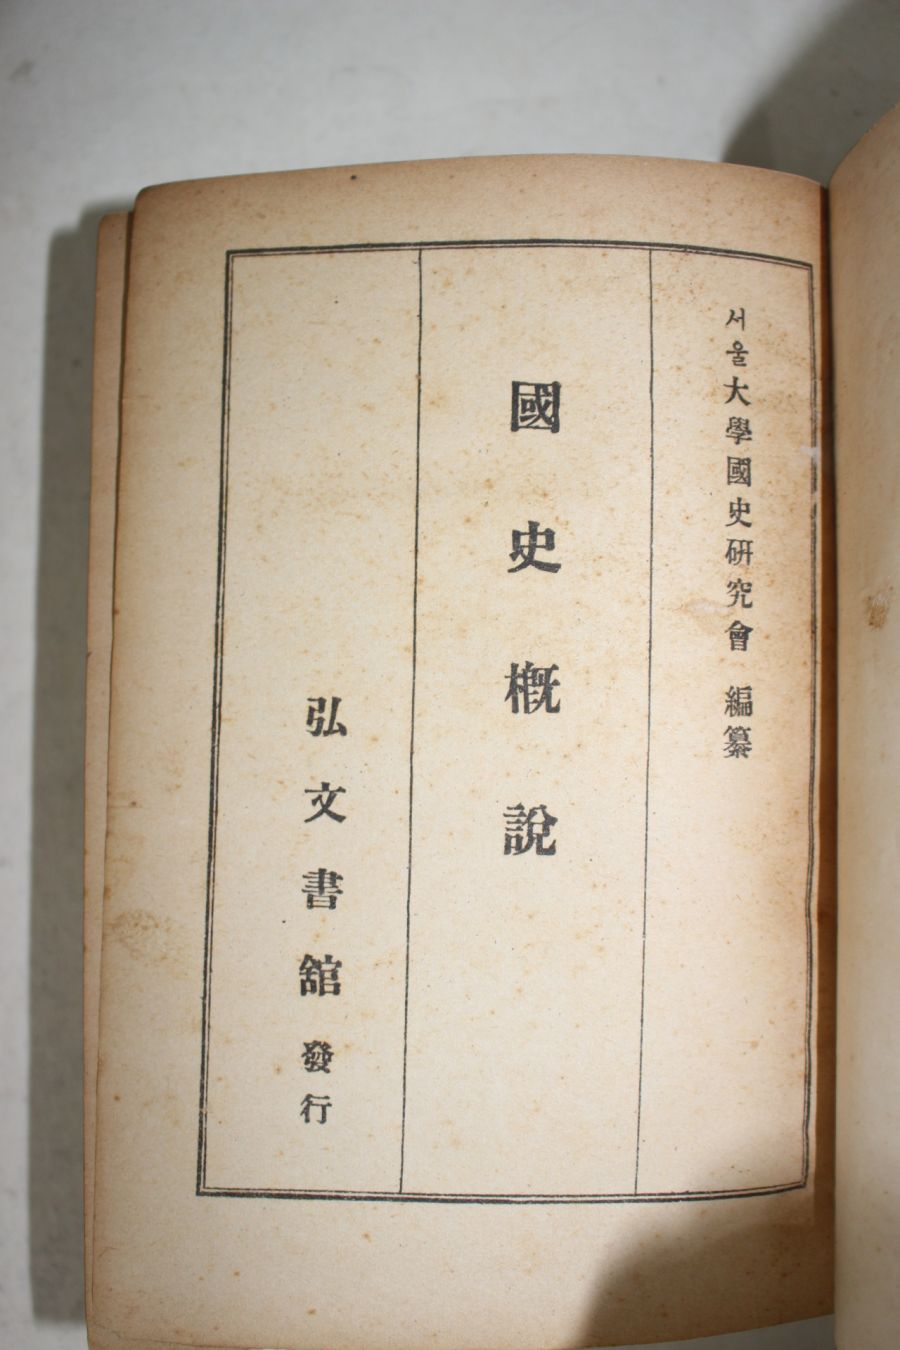 서울大學國史硏究會 編纂
國史槪說
弘文書舘 發行